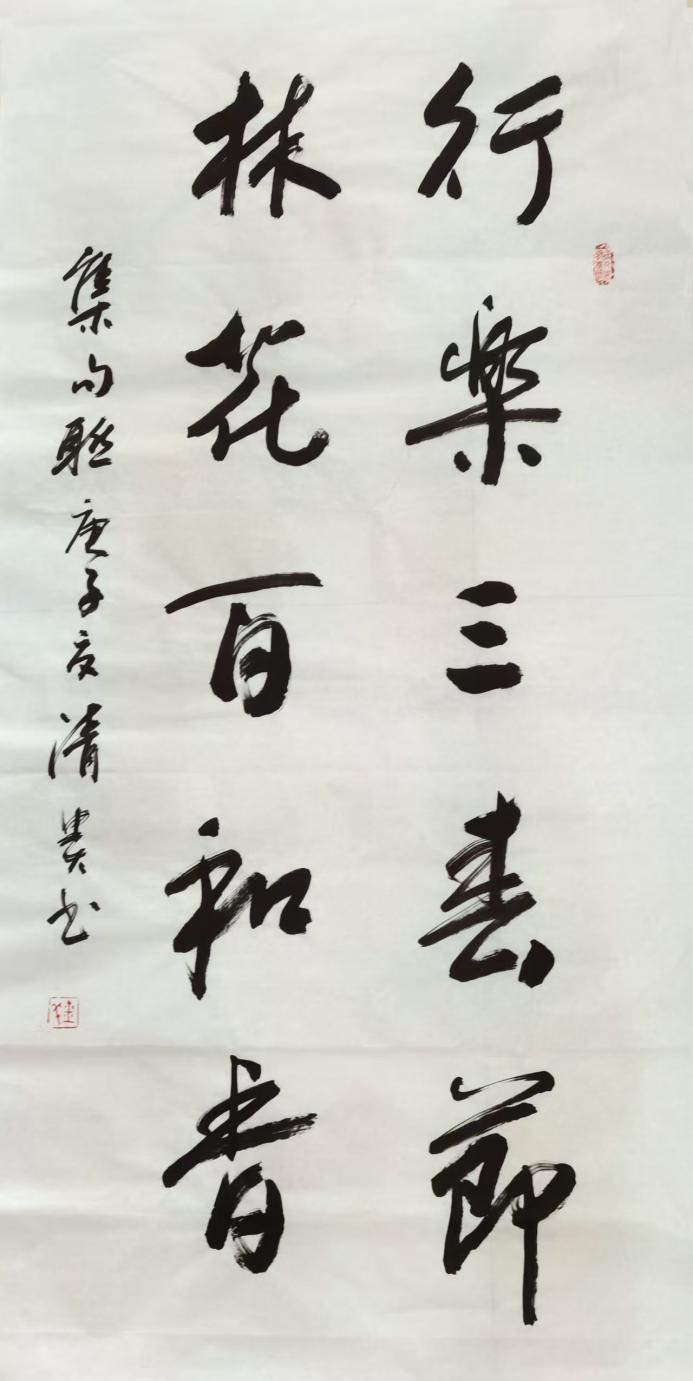 行樂三春節
林花百和香
集句聯庚子夏清貴书